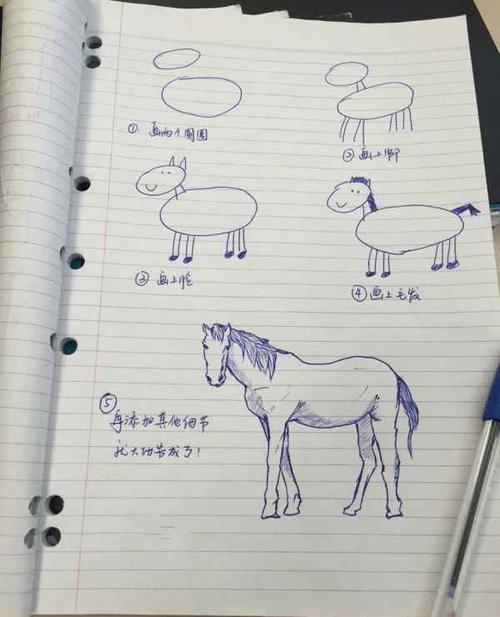 ① 画两个圆圈
② 画上脚
③ 画上脸
④ 画上毛发
⑤
再添加其他细节
就大功告成了!